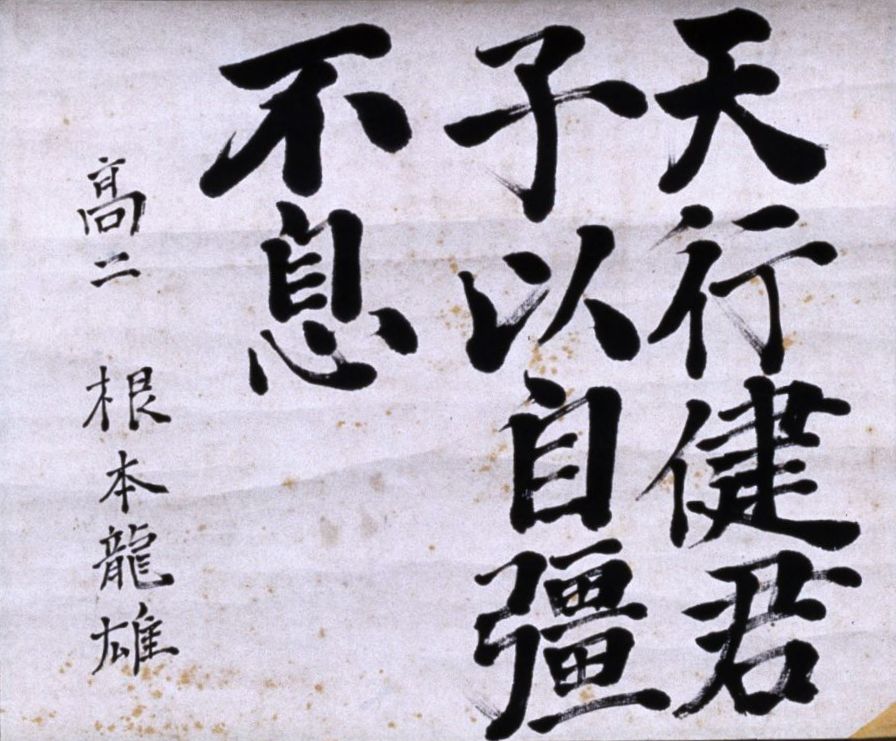 天行健君
子以自彊
不息
高二 根本龍雄